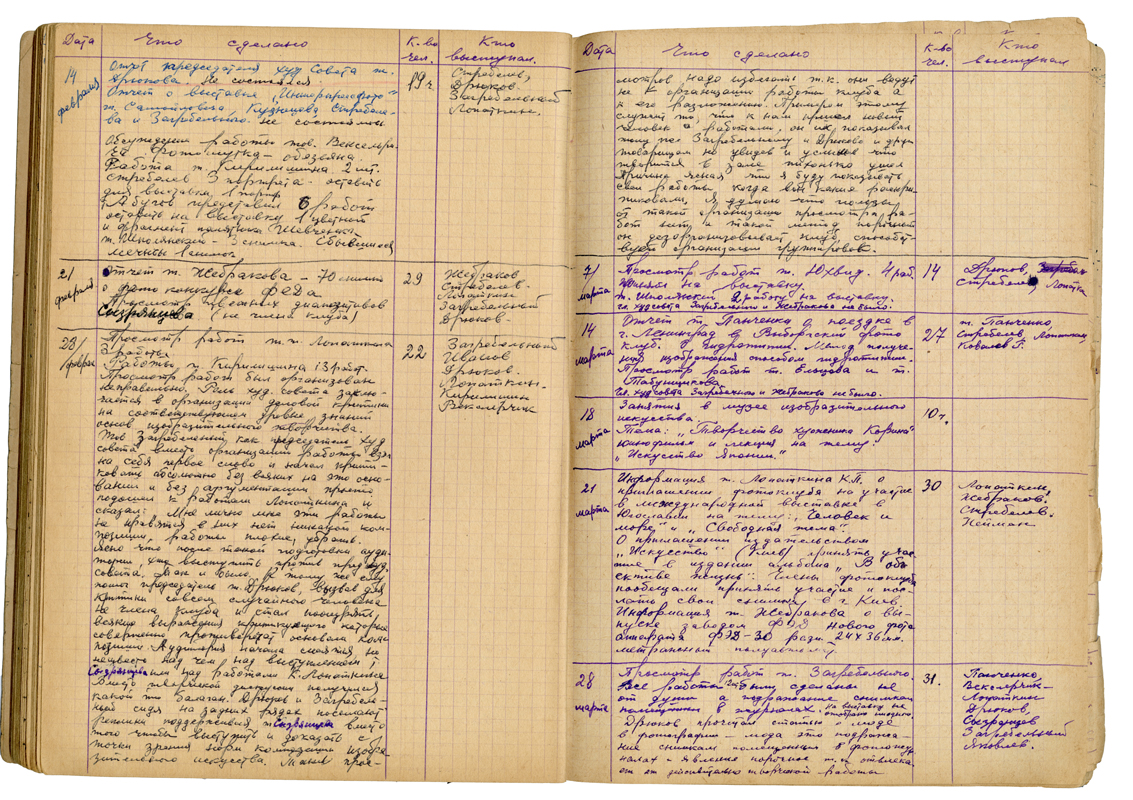 Дата
Что сделано
К-во чел.
Кто выступал.
14 февраля
Отчёт председателя худ Совета т.
Дрюкова. Не состоялся
Отчет о выставке „Интерпрессфото"
т. Самотлова, Кудряшева Стребеле-
ва и Загребельного. не состоялся
Обсуждение работы тов. Векслера.
Работа т. Киримишина 2 шт.
Стребелев 3 портрета - оставить
для выставки 1 портр
представил 6 работ
оставить на выставку 1 цветной
и фрагмент памятника Шевченко
т. Школянский - 3 снимка. Сбывшиеся
мечты 1 снимок
19 ч.
Стребелев,
Дрюков.
Загребельный
Лопаткин.
21 февраля
Отчет т. Жебракова - 70 снимков
о фото конкурсе ФЭДа
Просмотр цветных диапозитивов
Сызранцева (не члена клуба)
29
Жебраков.
Стребелев.
Лопаткин
Загребельный
Дрюков.
23/ феврал
Просмотр работ т.т. Лопаткина
3 работы
Работы т. Киримишина 13 работ.
Просмотр работ был организован
неправильно. Роль худ. совета заклю-
чается в организации деловой критики
на соответствующем уровне, знаний
основ изобразительного творчества.
Тов Загребельный как председатель худ
совета вместо организации работы взял
на себя первое слово и начал крити-
ковать абсолютно без всяких на это осно-
ваний и без аргументации просто
подошел к работам Лопаткина и
сказал: Мне лично мне эти работы
не нравятся в них нет никакой ком-
позиции, работы плохие, убрать.
Ясно что после такой подготовки ауди-
тории кто выступит против пред. худ.
совета. Так и было. К тому же ему
помог председатель т. Дрюков, вызвав для
критики совсем случайного человека
не члена клуба и стал поощрять
всякие выражения критикующего которые
совершенно противоречат основам ком-
позиции Аудитория начала смеятся не
неизвестно над чем, над выступлением т
Сызранцева или над работами К. Лопаткина
Вместо творческой дискуссии получился
какой то балаган Дрюков и Загребель-
ный сидя на задних рядах посылают
реплики поддерживая т Сызранцева вместо
того чтобы выступить и доказать с
точки зрения норм композиции изобра-
зительного искусства. Таких прос-
22
Загребельный
Иванов
Дрюков.
Лопаткин.
Киримишин
Векслерчик
Дата
Что сделано
К-во чел.
Кто выступал
мотров надо избегать т.к. они ведут
не к организации работы клуба а
к его разложению. Примером этому
случай то, что к нам пришел новый
человек с работами, он их показывал
тому же Загребельному и Дрюкову и друг.
товарищам но увидев и услышав что
творится в зале тихонько ушел
Причина ясная что я буду показывать
свои работы когда вон какие раскри-
тиковали. Я думаю что пользы
от такой организации просмотра ра-
бот нет и такой метод порочный
он дезорганизовывает клуб, способст-
вует организации группировок.
7/ марта
Просмотр работ т. Юхвид. 4 раб.
на выставку.
т. Школский 2 работы на выставку
чл. худсовета Загребельного и Жебракова не было.
14
Дрюков,
Стребелев, Лопатка
14 марта
Отчет т. Панченко о поездке в
г. Ленинград в Выборгский фото
клуб. О гидротипии. Метод получе-
ния изображения способом гидротипии.
Просмотр работ т. Ельцова и т.
Табунщикова.
чл. худсовета Загребельного и Жебракова не было.
27
т. Панченко
Стребелев Лопаткин
Ковалев Г.
18 марта
Занятия в музее изобразительного
искусства.
Тема: „Творчество художника Корина"
кинофильм и лекция на тему:
„Искусство Японии."
10 ч.
21 марта
Информация т. Лопаткина К.П. о
приглашении фотоклуба на участие
в международной выставке в
Югославии на тему: „Человек и
море" и „Свободная тема".
О приглашении издательством
„Искусство" (Киев) принять учас-
тие в издании альбома „В объ-
ективе жизнь": Члены фотоклуба
пообещали принять участие и пос-
лать свои снимки в г. Киев.
Информация т. Жебракова о вы-
пуске заводом ФЭД нового фото
аппарата ФЭД-30 разм. 24х36 мм.
30
Лопаткин,
Жебраков.
Стребелев.
Нейман
28 марта
Просмотр работ т. Загребельного.
Все работы были сделаны не
от души а подражания снимкам
помещенных в журналах. на выставку не
отобрано ни одной.
Дрюков прочитал статью о моде
в фотографии - мода это подража-
ние снимкам помещенным в фотожур-
налах - явление порочное т.к отвлека-
ет от действительно творческой работы
31.
Панченко
Векслерчик
Лопаткин
Дрюков,
Сызранцев
Загребельный
Яковлев.